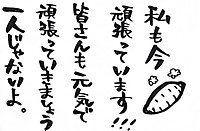 私も今
頑張っています!!!
皆さんも元気で
頑張っていきましょう
一人じゃないよ。